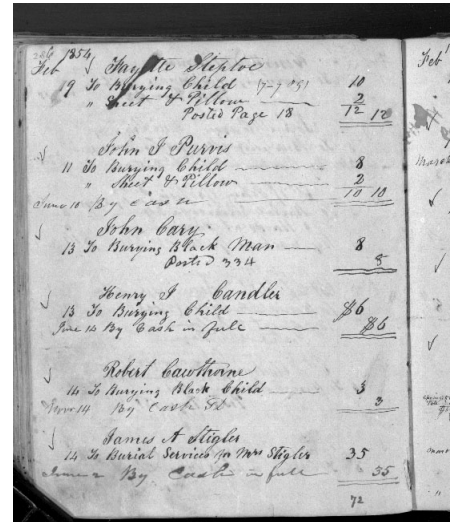 1854
Feb Fayette Steptoe
19 To Burying Child 10
" Sheet & Pillow 2
Posted Page 18 12 12
John J Purvis
11 To Burying Child 8
" Sheet & Pillow 2
June 10 By Cash 10 10
John Cary
13 To Burying Black Man 8
Posted 334 8
Henry J Candler
13 To Burying Child $6
June 14 By Cash in full $6
Robert Cawthorne
14 To Burying Black Child 3
June 14 By Cash 3
James A Stigler
14 To Burial Services for Mrs Stigler 35
By Cash in full 35
72
Feb
March